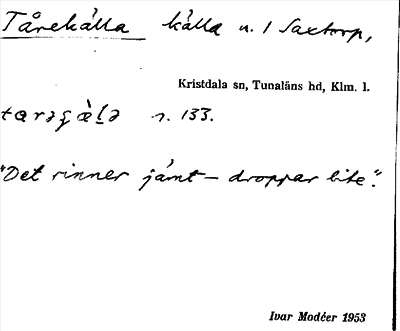 Tårekälla källa n. l Saxtorp,
Kristdala sn, Tunaläns hd, Klm. l.
r. 133.
"Det rinner jämt – droppar lite".
Ivar Modéer 1953